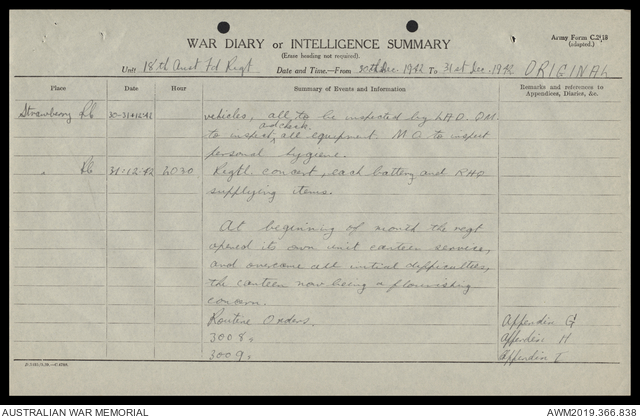 WAR DIARY or INTELLIGENCE SUMMARY
Army Form C.2118
(adapted.)
(Erase heading not required).
Unit 18th Aust Fd Regt Date and Time.—From 30th Dec 1942 To 31st Dec. 1942 ORIGINAL
Place Date Hour Summary of Events and Information Remarks and references to
Appendices, Diaries, &c.
Strawberry 30-31·12·42 vehicles, all to be inspected by LAD. QM.
and check
to inspect all equipment. M O to inspect
personal hygiene.
" 31·12·42 2030 Regtl. concert, each battery and RHQ
supplying items.
At beginning of month the regt
opened its own unit canteen service,
and overcame all initial difficulties,
the canteen now being a flourishing
concern.
Routine Orders. Appendix G
3008. Appendix H
3009. Appendix I
AUSTRALIAN WAR MEMORIAL AWM2019.366.838